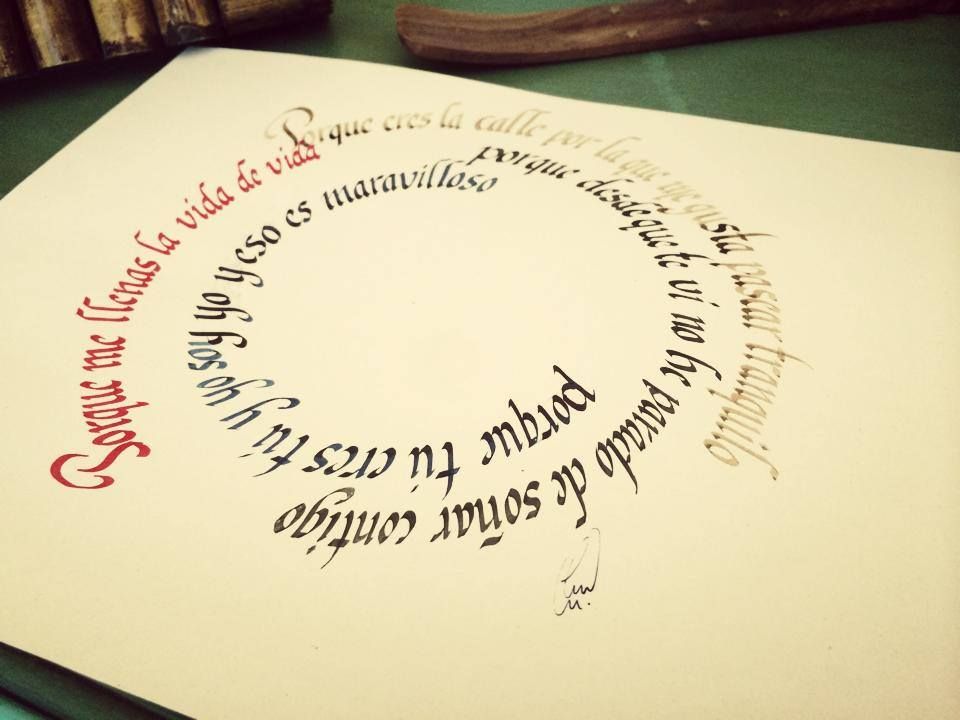 Porque me llenas la vida de vida
Porque eres la calle por la que me gusta pasear tranquilo
porque desde que te vi no he parado de soñar contigo
porque tú eres tú y yo soy yo y eso es maravilloso